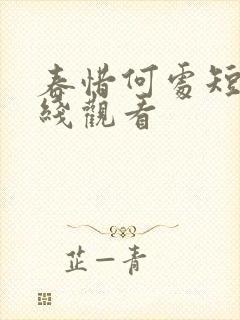 春惜何處短
綫觀看
芷一青